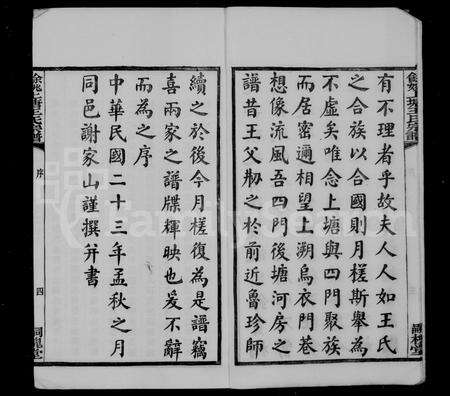 有不理者乎故夫人人如王氏
之合族以合國則月槎斯舉為
不虛矣唯念上塘與四門聚族
而居密邇相望上溯烏衣門巷
想像流風吾四門後塘河房之
譜昔王父刱之於前近魯珍師
續之於後今月槎復為是譜竊
喜兩家之譜牒輝映也爰不辭
而為之序
中華民國二十三年孟秋之月
同邑謝家山謹撰并書
序
四